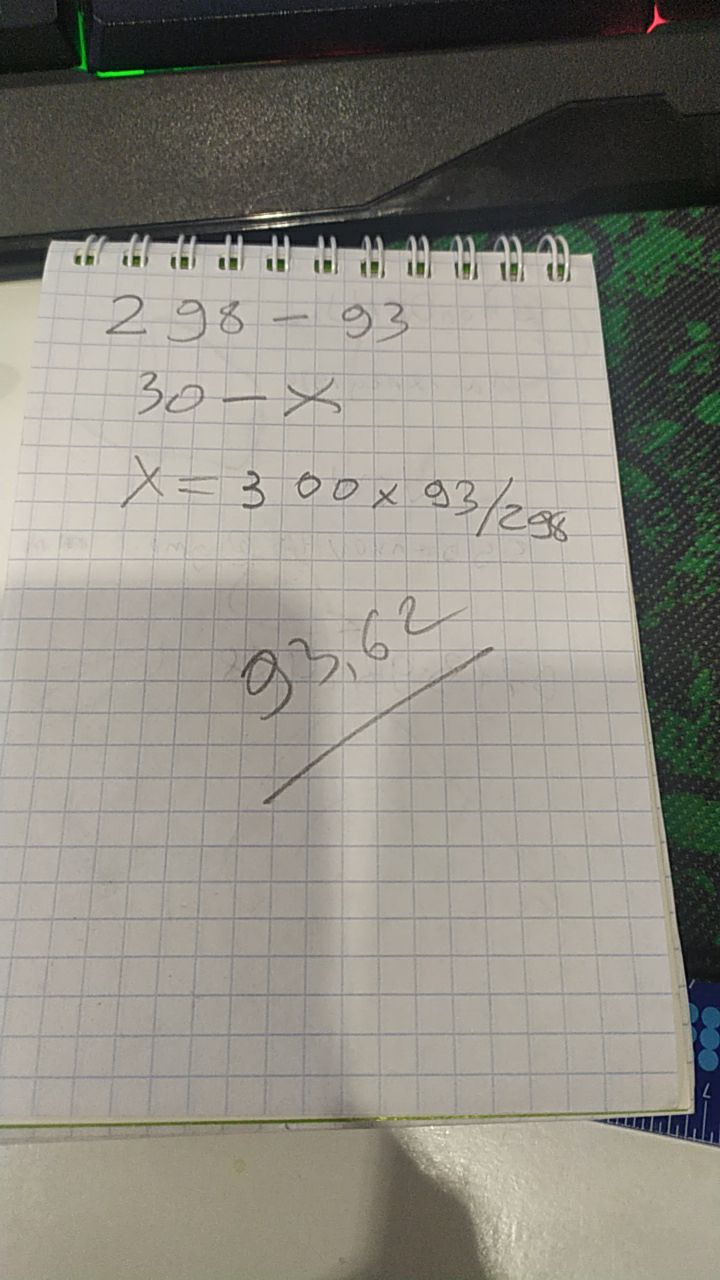 298 - 93
30 - x
x = 300 x 93/298
93,62